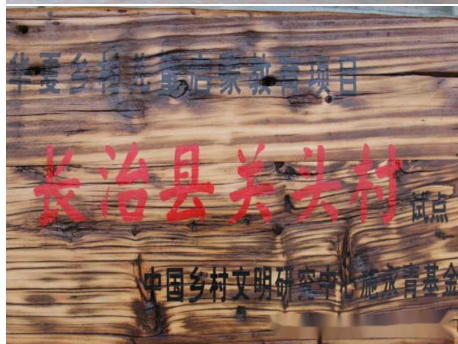 华夏乡村儿童启蒙教育项目
长治县关头村 试点
中国乡村文明研究中心 施永青基金